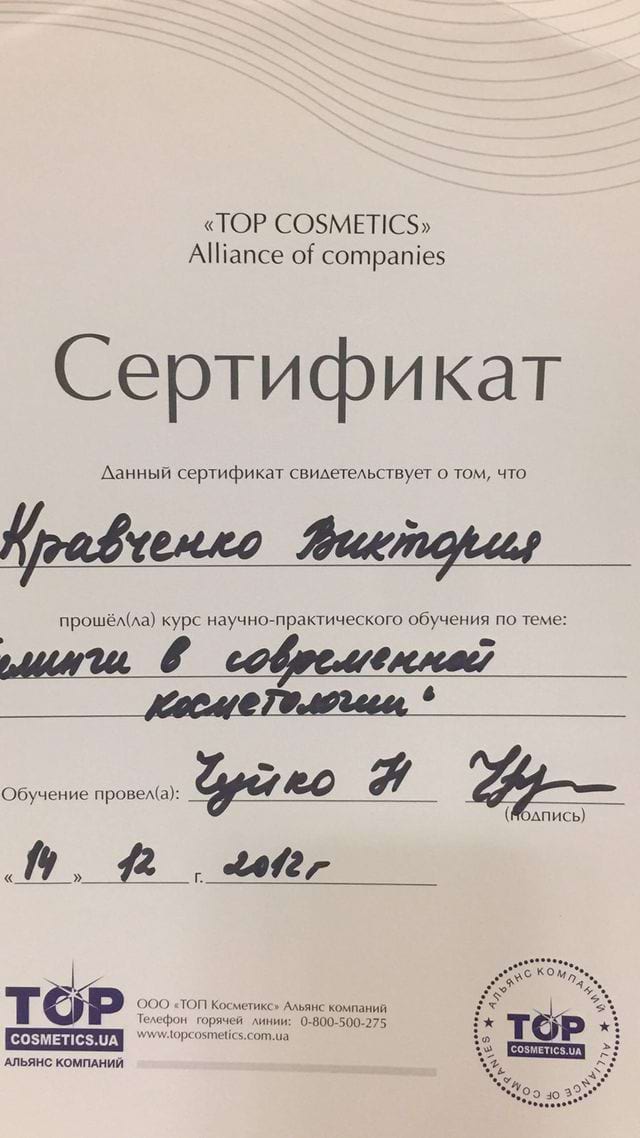 «TOP COSMETICS»
Alliance of companies
Сертификат
Данный сертификат свидетельствует о том, что
Кравченко Виктория
прошёл(ла) курс научно-практического обучения по теме:
в современной
косметологии"
Обучение провел(а): Чуйко Н
(подпись)
«14» 12 г. 2012г
TOP
COSMETICS.UA
АЛЬЯНС КОМПАНИЙ
ООО «ТОП Косметикс» Альянс компаний
Телефон горячей линии: 0-800-500-275
www.topcosmetics.com.ua
АЛЬЯНС КОМПАНИЙ
TOP
COSMETICS.UA
ALLIANCE OF COMPANIES